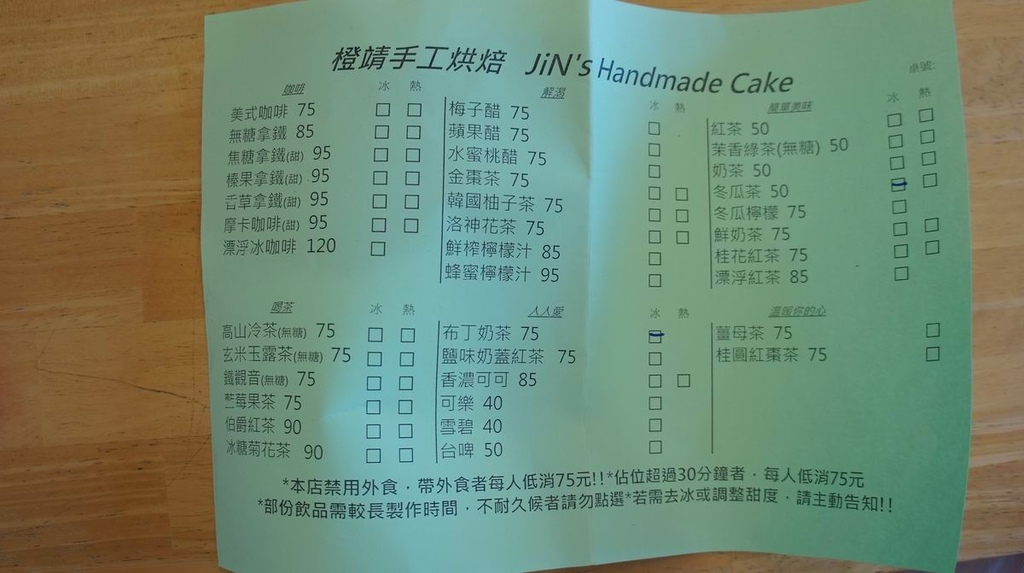 橙靖手工烘焙 JiN's Handmade Cake
桌號:
咖啡 冰 熱
美式咖啡 75 □ □
無糖拿鐵 85 □ □
焦糖拿鐵(甜) 95 □ □
榛果拿鐵(甜) 95 □ □
香草拿鐵(甜) 95 □ □
摩卡咖啡(甜) 95 □ □
漂浮冰咖啡 120 □
解渴 冰 熱
梅子醋 75 □
蘋果醋 75 □
水蜜桃醋 75 □
金棗茶 75 □ □
韓國柚子茶 75 □ □
洛神花茶 75 □ □
鮮榨檸檬汁 85 □
蜂蜜檸檬汁 95 □
簡單美味 冰 熱
紅茶 50 □ □
茉香綠茶(無糖) 50 □ □
奶茶 50 □ □
冬瓜茶 50 □ □
冬瓜檸檬 75 □
鮮奶茶 75 □ □
桂花紅茶 75 □ □
漂浮紅茶 85 □
喝茶 冰 熱
高山冷茶(無糖) 75 □ □
玄米玉露茶(無糖) 75 □ □
鐵觀音(無糖) 75 □ □
莓果茶 75 □ □
伯爵紅茶 90 □ □
冰糖菊花茶 90 □ □
人人愛 冰 熱
布丁奶茶 75 □
鹽味奶蓋紅茶 75 □
香濃可可 85 □ □
可樂 40 □
雪碧 40 □
台啤 50 □
溫暖你的心
薑母茶 75 □
桂圓紅棗茶 75 □
*本店禁用外食，帶外食者每人低消75元!!*佔位超過30分鐘者，每人低消75元
*部份飲品需較長製作時間，不耐久候者請勿點選*若需去冰或調整甜度，請主動告知!!